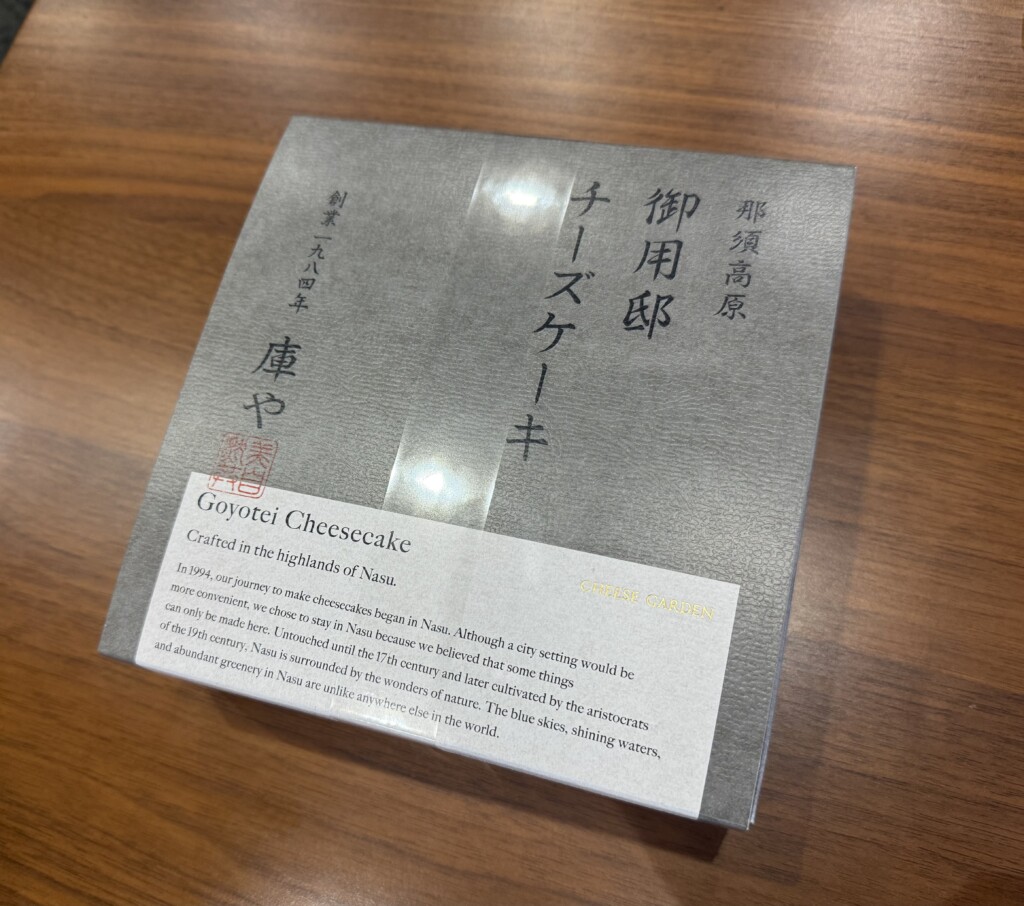 那須高原
御用邸
チーズケーキ
創業一九八四年
庫や
Goyotei Cheesecake
Crafted in the highlands of Nasu.
CHEESE GARDEN
In 1994, our journey to make cheesecakes began in Nasu. Although a city setting would be
more convenient, we chose to stay in Nasu because we believed that some things
can only be made here. Untouched until the 17th century and later cultivated by the aristocrats
of the 19th century, Nasu is surrounded by the wonders of nature. The blue skies, shining waters,
and abundant greenery in Nasu are unlike anywhere else in the world.